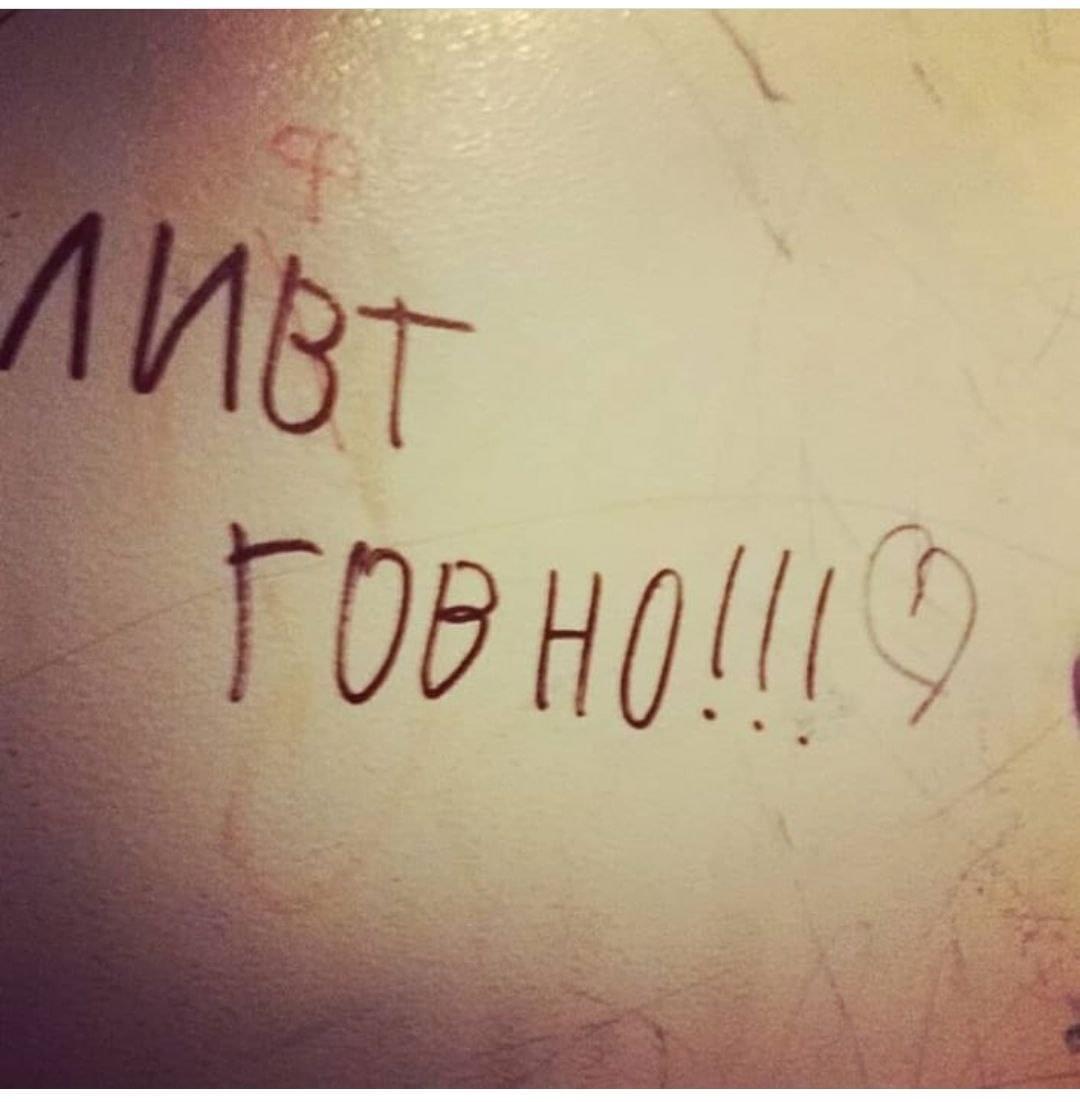 ЛИВТ
ГОВНО!!!